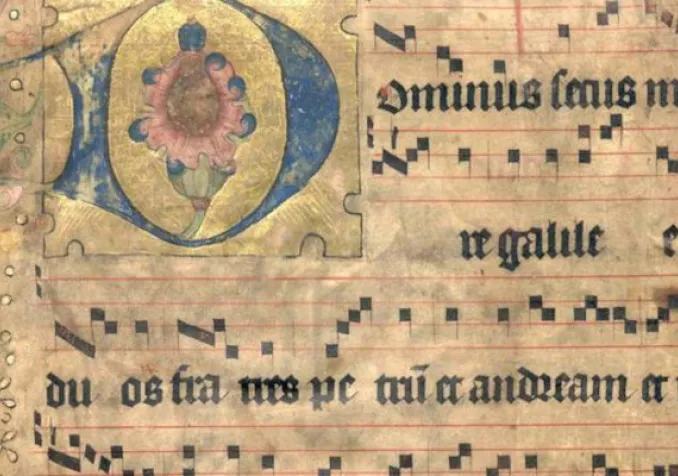 Dominus secus m
re galile e
du os fra tres pe trū et andream et